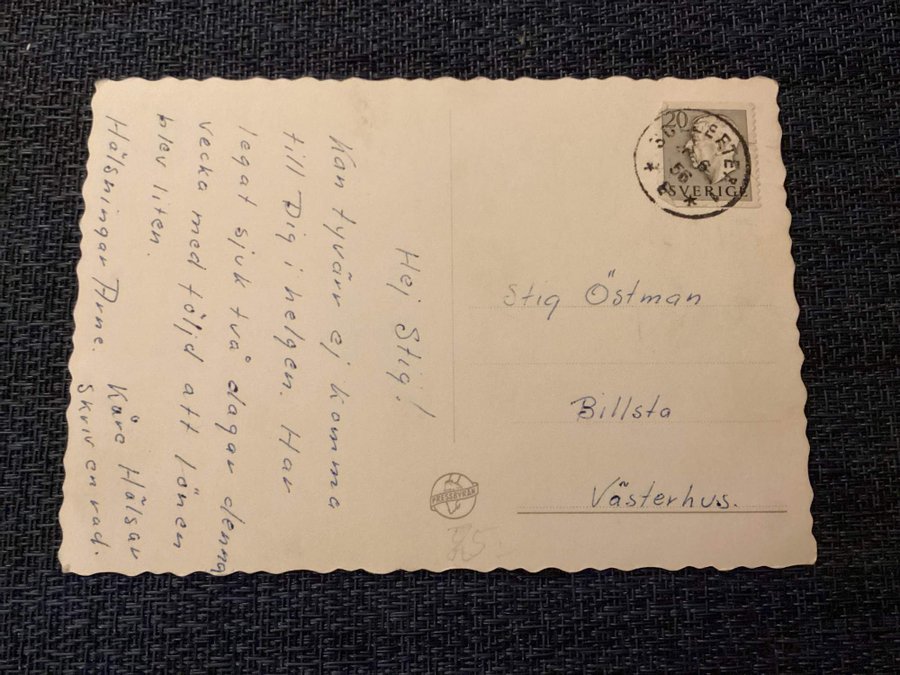 Hej Stig!
Kan tyvärr ej komma
till Dig i helgen. Har
legat sjuk två dagar denna
vecka med följd att lönen
blev liten.
Hälsningar Arne. Kåre Hälsar
skriv en rad.
20
SVERIGE
6
56
Stig Östman
Billsta
Västerhus.
PRESSBYRÅN